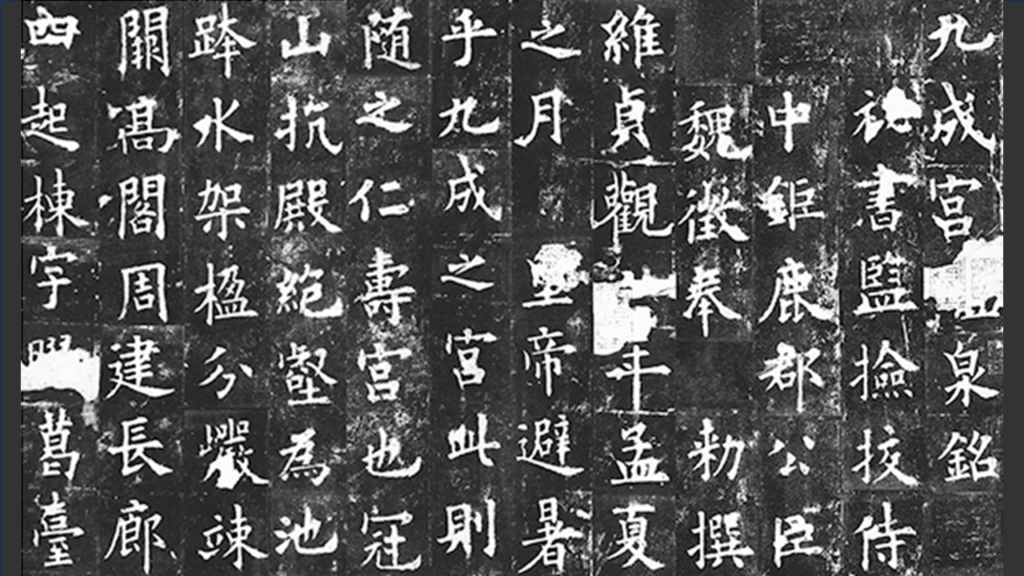 九成宮泉銘
祕書監撿挍侍
中鉅鹿郡公臣
魏徵奉 勑撰
維貞觀年孟夏
之月 皇帝避暑
乎九成之宮此則
随之仁壽宮也冠
山抗殿絶壑為池
跨水架楹分巖竦
闕髙閣周建長廊
四起棟宇葛臺